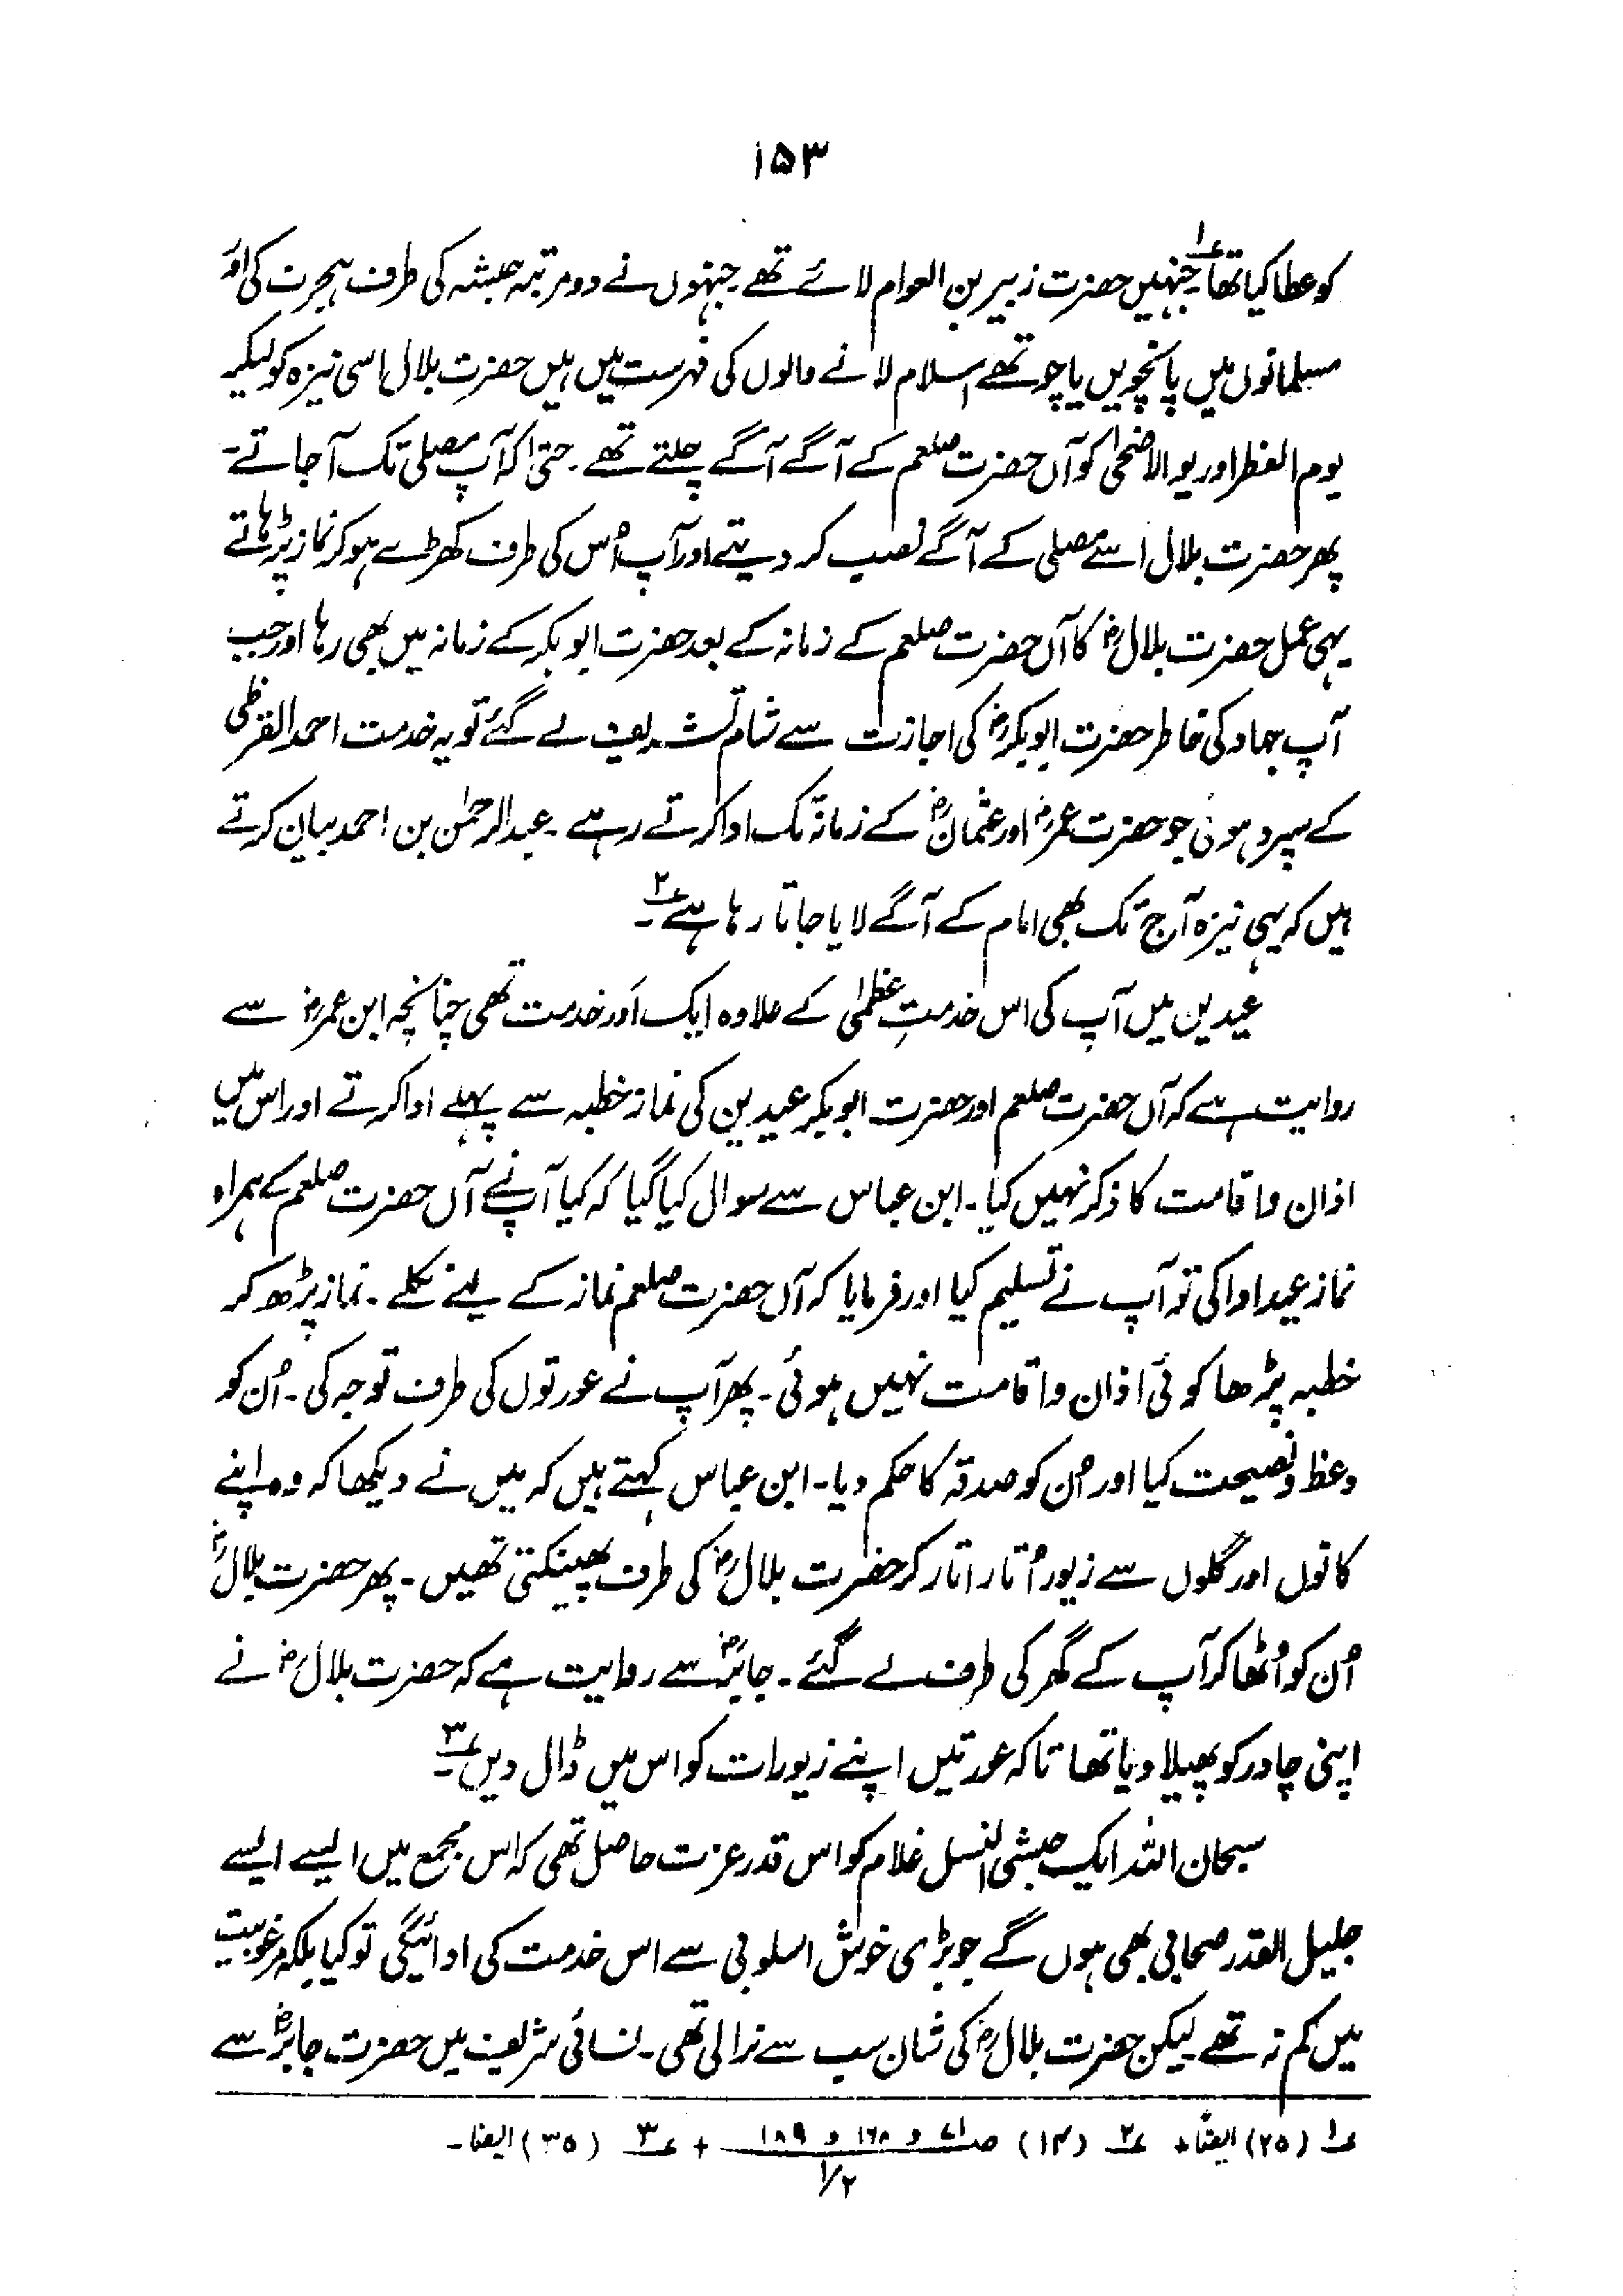 ۱۵۳
کو عطا کیا تھا؏۱۔ جنہیں حضرت زبیر بن العوام لائے تھے۔ جنہوں نے دو مرتبہ حبشہ کی طرف ہجرت کی اور
مسلمانوں میں پانچویں یا چوتھے اسلام لانے والوں کی فہرست میں ہیں حضرت بلال اسی نیزہ کو لیکر
یوم الفطر اور یوالاضحیٰ کو آں حضرت صلعم کے آگے آگے چلتے تھے۔ حتیٰ کہ آپ مصلی تک آ جاتے۔
پھر حضرت بلال اسے مصلی کے آگے نصب کر دیتے اور آپ اُس کی طرف کھڑے ہو کر نماز پڑہاتے
یہی عمل حضرت بلالؓ کا آں حضرت صلعم کے زمانہ کے بعد حضرت ابو بکر کے زمانہ میں بھی رہا اور جب
آپ جہاد کی خاطر حضرت ابو بکرؓ کی اجازت سے شام تشریف لے گئے تو یہ خدمت احمد القرظی
کے سپرد ہوئی جو حضرت عمرؓ اور عثمانؓ کے زمانہ تک ادا کرتے رہے۔ عبدالرحمٰن بن احمد بیان کرتے
ہیں کہ یہی نیزہ آج تک بھی امام کے آگے لایا جاتا رہا ہے؏۲۔
عیدین میں آپ کی اس خدمتِ عظمیٰ کے علاوہ ایک اَور خدمت تھی چنانچہ ابن عمرؓ سے
روایت ہے کہ آں حضرت صلعم اور حضرت ابو بکر عیدین کی نماز خطبہ سے پہلے ادا کرتے اور اس میں
اذان و اقامت کا ذکر نہیں کیا۔ ابن عباس سے سوال کیا گیا کہ کیا آپنے آں حضرت صلعم کے ہمراہ
نماز عید ادا کی تو آپ نے تسلیم کیا اور فرمایا کہ آں حضرت صلعم نماز کے لیئے نکلے۔ نماز پڑھ کر
خطبہ پڑھا کوئی اذان و اقامت نہیں ہوئی۔ پھر آپ نے عورتوں کی طرف توجہ کی۔ اُن کو
وعظ و نصیحت کیا اور اُن کو صدقہ کا حکم دیا۔ ابن عباس کہتے ہیں کہ میں نے دیکھا کہ وہ اپنے
کانوں اور گلوں سے زیور اُتار اتار کر حضرت بلالؓ کی طرف پھینکتی تھیں۔ پھر حضرت بلالؓ
اُن کو اُٹھا کر آپ کے گھر کی طرف لے گئے۔ جابرؓ سے روایت ہے کہ حضرت بلالؓ نے
اپنی چادر کو پھیلا دیا تھا تاکہ عورتیں اپنے زیورات کو اس میں ڈال دیں؏۳۔
سبحان اللہ ایک حبشی النسل غلام کو اس قدر عزت حاصل تھی کہ اس مجمع میں ایسے ایسے
جلیل القدر صحابی بھی ہوں گے جو بڑی خوش اسلوبی سے اس خدمت کی ادائیگی تو کیا بلکہ مرغوبیت
میں کم نہ تھے لیکن حضرت بلالؓ کی شان سب سے نرالی تھی۔ نسائی شریف میں حضرت جابرؓ سے
؏۱ (۲۵) ایضاً + ؏۲ (۱۴) صـ ۷۱ و ۱۶۸ و ۱۸۹ + ؏۳ (۳۵) ایضاً۔
۱/۲